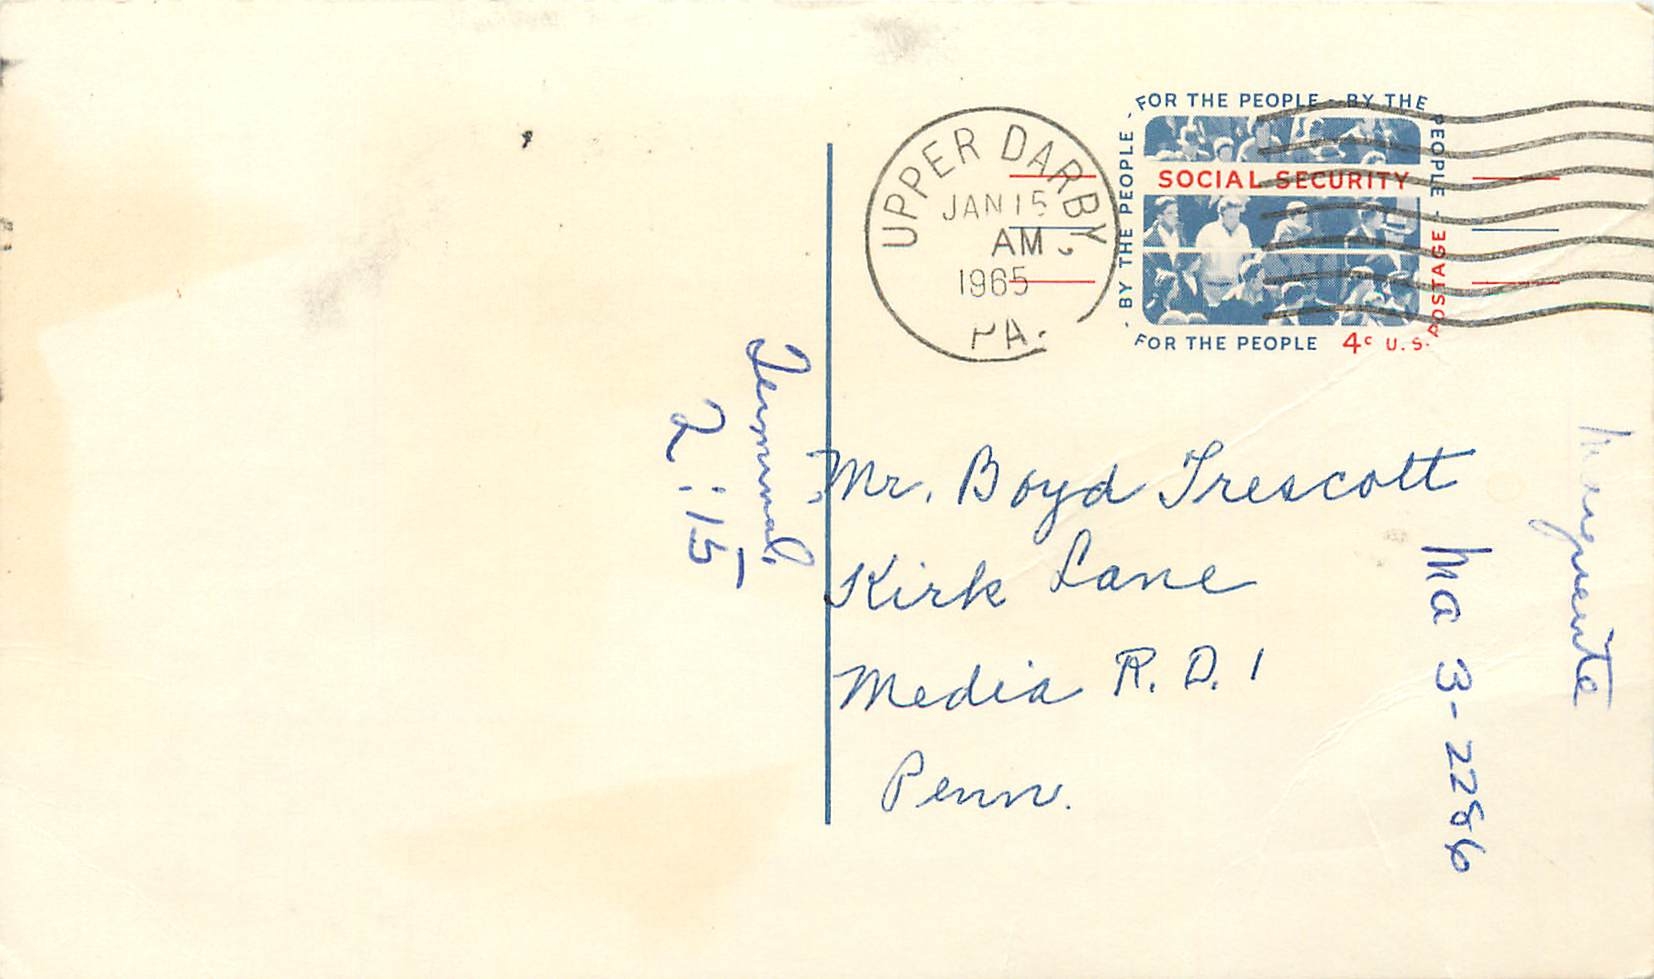 UPPER DARBY
JAN 15
AM
1965
PA.
FOR THE PEOPLE - BY THE PEOPLE - POSTAGE
- BY THE PEOPLE -
SOCIAL SECURITY
FOR THE PEOPLE 4c U.S.
Terminal
2:15
Mr. Boyd Trescott
Kirk Lane
Media R. D. 1
Penn.
Ma 3-2286
Marguerite